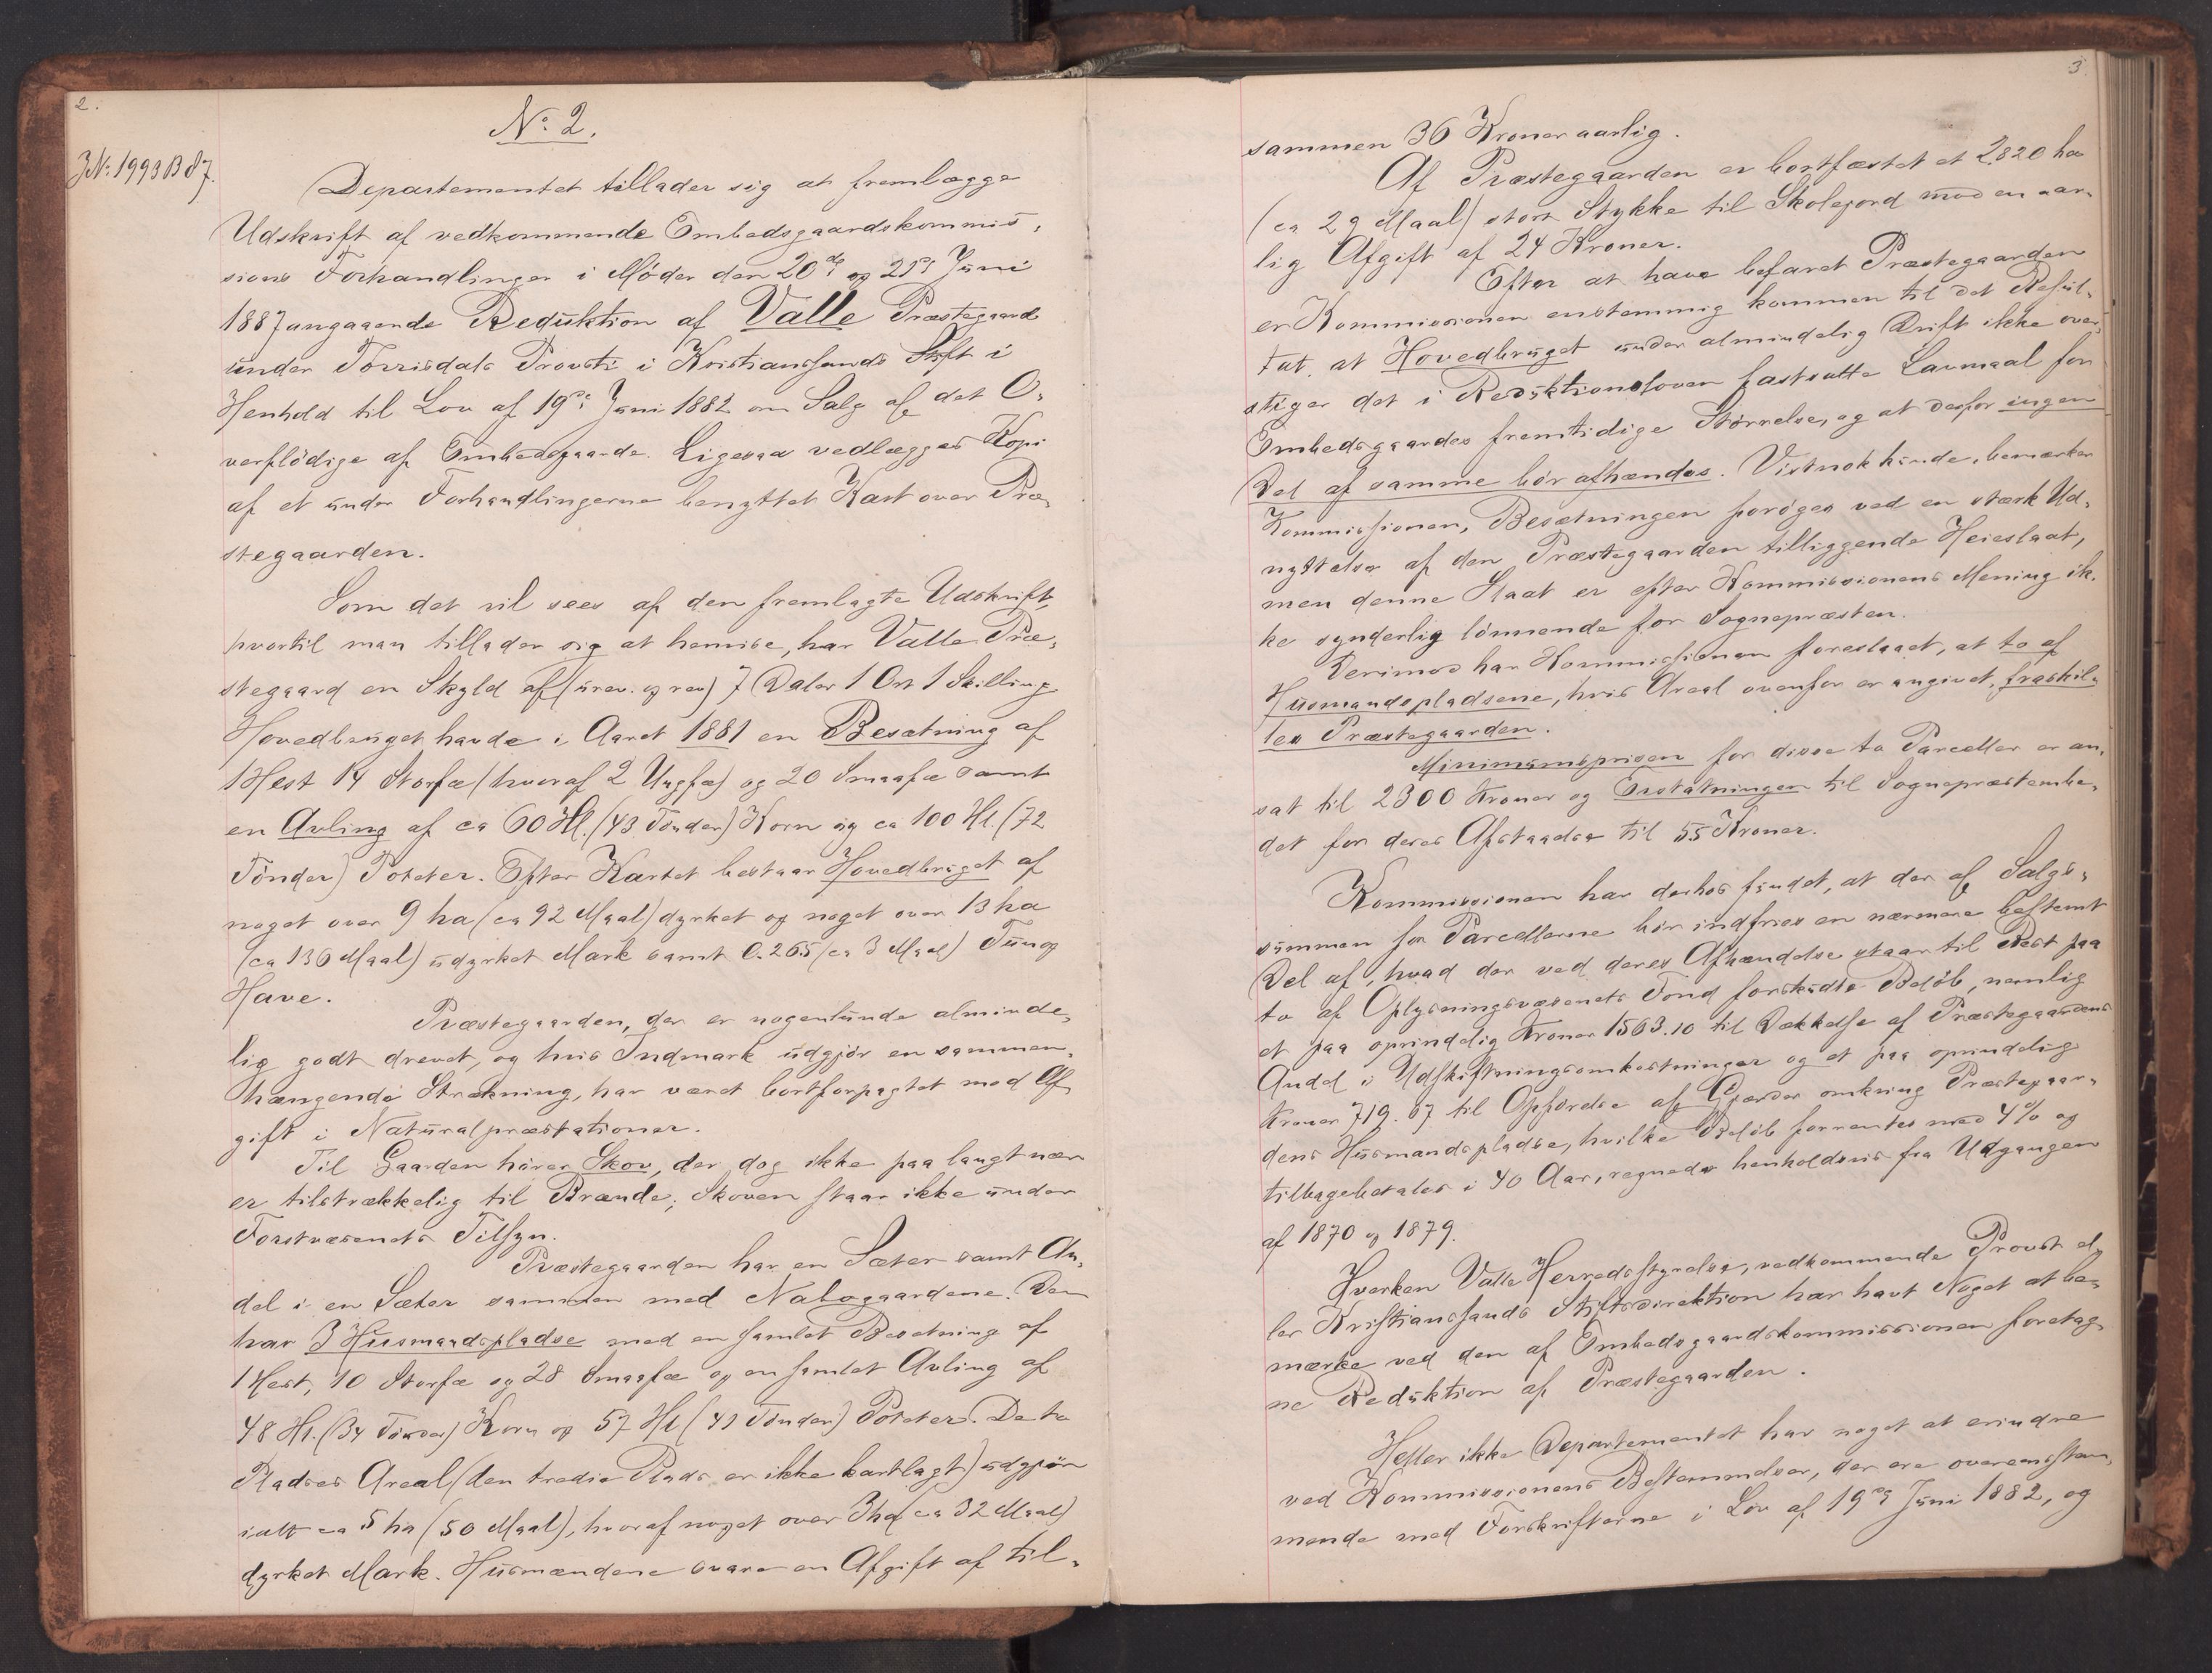 2.
No. 2.
JN: 1993 B 87.
Departementet tillader sig at fremlægge
Udskrift af vedkommende Embedsgaardskommis-
sions Forhandlinger i Møder den 20de og 21de Juni
1887 angaaende Reduktion af Valle Præstegaard
under Torrisdals Provsti i Kristianssands Stift i
Henhold til Lov af 19de Juni 1882 om Salg af det O-
verflödige af Embedsgaarde. Ligesaa vedlægges Kopi
af et under Forhandlingerne benyttet Kart over Præ-
stegaarden.
Som det vil sees af den fremlagte Udskrift,
hvortil man tillader sig at henvise, har Valle Præ-
stegaard en Skyld af (urev. og rev) 7 Daler 1 Ort 1 Skilling
Hovedbruget havde i Aaret 1881 en Besætning af
1 Hest 14 Storfæ (hvoraf 2 Ungfæ) og 20 Smaafæ samt
en Avling af ca 60 Hl. (43 Tönder) Korn og ca 100 Hl. (72
Tönder) Poteter. Efter Kartet bestaar Hovedbruget af
noget over 9 ha (ca 92 Maal) dyrket og noget over 13 ha
(ca 136 Maal) udyrket Mark samt 0.265 (ca 3 Maal) Tun og
Have.
Præstegaarden, der er nogenlunde alminde-
lig godt drevet, og hvis Indmark udgjör en sammen-
hængende Strækning, har været bortforpagtet mod Af-
gift i Naturalpræstationer.
Til Gaarden hörer Skov, der dog ikke paa langt nær
er tilstrækkelig til Brænde; Skoven staar ikke under
Forstvæsenets Tilsyn.
Præstegaarden har en Sæter samt An-
del i en Sæter sammen med Nabogaardene. Den
har 3 Husmandspladse med en samlet Besætning af
1 Hest, 10 Storfæ og 28 Smaafæ og en samlet Avling af
48 Hl. (34 Tönder) Korn og 57 Hl (41 Tönder) Poteter. De to
Pladses Areal (den tredie Plads er ikke kartlagt) udgjör
ialt ca 5 ha (50 Maal), hvoraf noget over 3 ha (ca 32 Maal)
dyrket Mark. Husmændene svare en Afgift af til-
3
sammen 36 Kroner aarlig.
Af Præstegaarden er bortfæstet et 2.820 ha
(ca 29 Maal) stort Stykke til Skolejord mod en aar-
lig Afgift af 24 Kroner.
Efter at have befaret Præstegaarden
er Kommissionen enstemmig kommen til det Resul-
tat, at Hovedbruget under almindelig Drift ikke over-
stiger det i Reduktionsloven fastsatte Lavmaal for
Embedsgaardes fremtidige Störrelse, og at derfor ingen
Del af samme bör afhændes. Vistnok kunde, bemærker
Kommissionen, Besætningen foröges ved en stærk Ud-
nyttelse af den Præstegaarden tilliggende Heieslaat,
men denne Slaat er efter Kommissionens Mening ik-
ke synderlig lönnende for Sognepræsten.
Derimod har Kommissionen foreslaaet, at to af
Husmandspladsene, hvis Areal ovenfor er angivet, fraskil-
les Præstegaarden.
Minimumsprisen for disse to Parceller er an-
sat til 2300 Kroner og Erstatningen til Sognepræstembe-
det for deres Afstaaelse til 55 Kroner.
Kommissionen har derhos fundet, at der af Salgs-
summen for Parcellerne bör indfries en nærmere bestemt
Del af, hvad der ved deres Afhændelse staar til Rest paa
to af Oplysningsvæsenets Fond forskudte Belöb, nemlig
et paa oprindelig Kroner 1563.10 til Dækkelse af Præstegaardens
Andel i Udskiftningsomkostninger og et paa oprindelig
Kroner 719.07 til Opförelse af Gjærder omkring Præstegaar-
dens Husmandspladse, hvilke Belöb forrentes med 4% og
tilbagebetales i 40 Aar, regnede henholdsvis fra Udgangen
af 1870 og 1879.
Hverken Valle Herredsstyrelse, vedkommende Provst el-
ler Kristianssands Stiftsdirektion har havt Noget at be-
mærke ved den af Embedsgaardskommissionen foretag-
ne Reduktion af Præstegaarden.
Heller ikke Departementet har noget at erindre
ved Kommissionens Bestemmelser, der ere overensstem-
mende med Forskrifterne i Lov af 19de Juni 1882, og